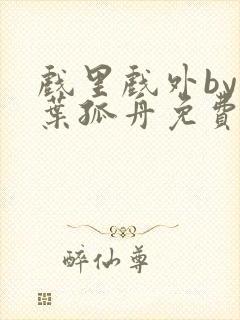 戲里戲外by
葉孤舟免費
醉仙尊